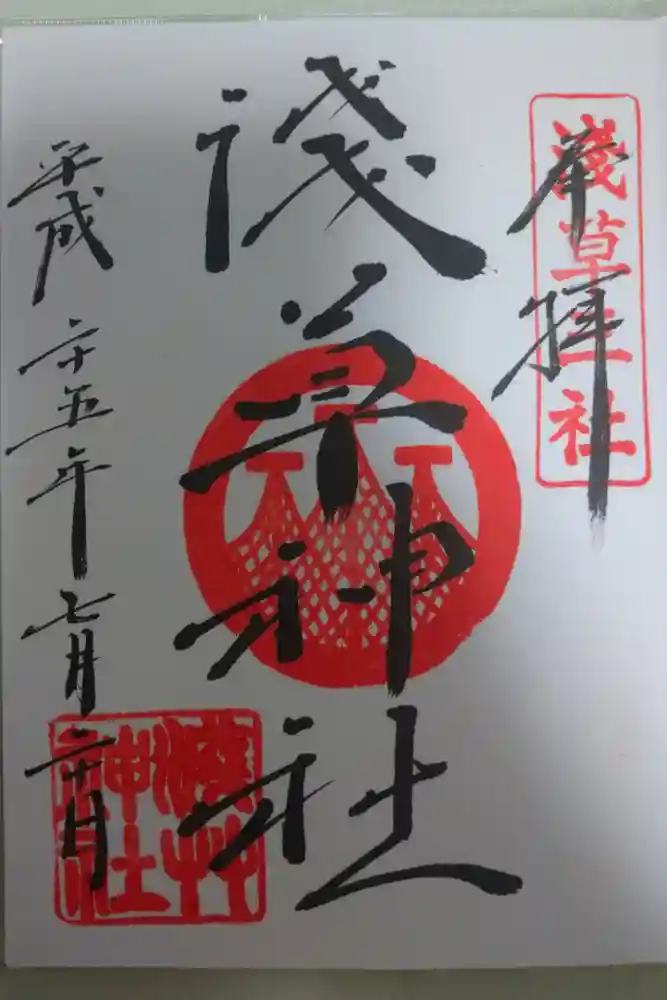 奉拝
淺草三社
淺草神社
平成二十五年七月二十日
淺草
神社